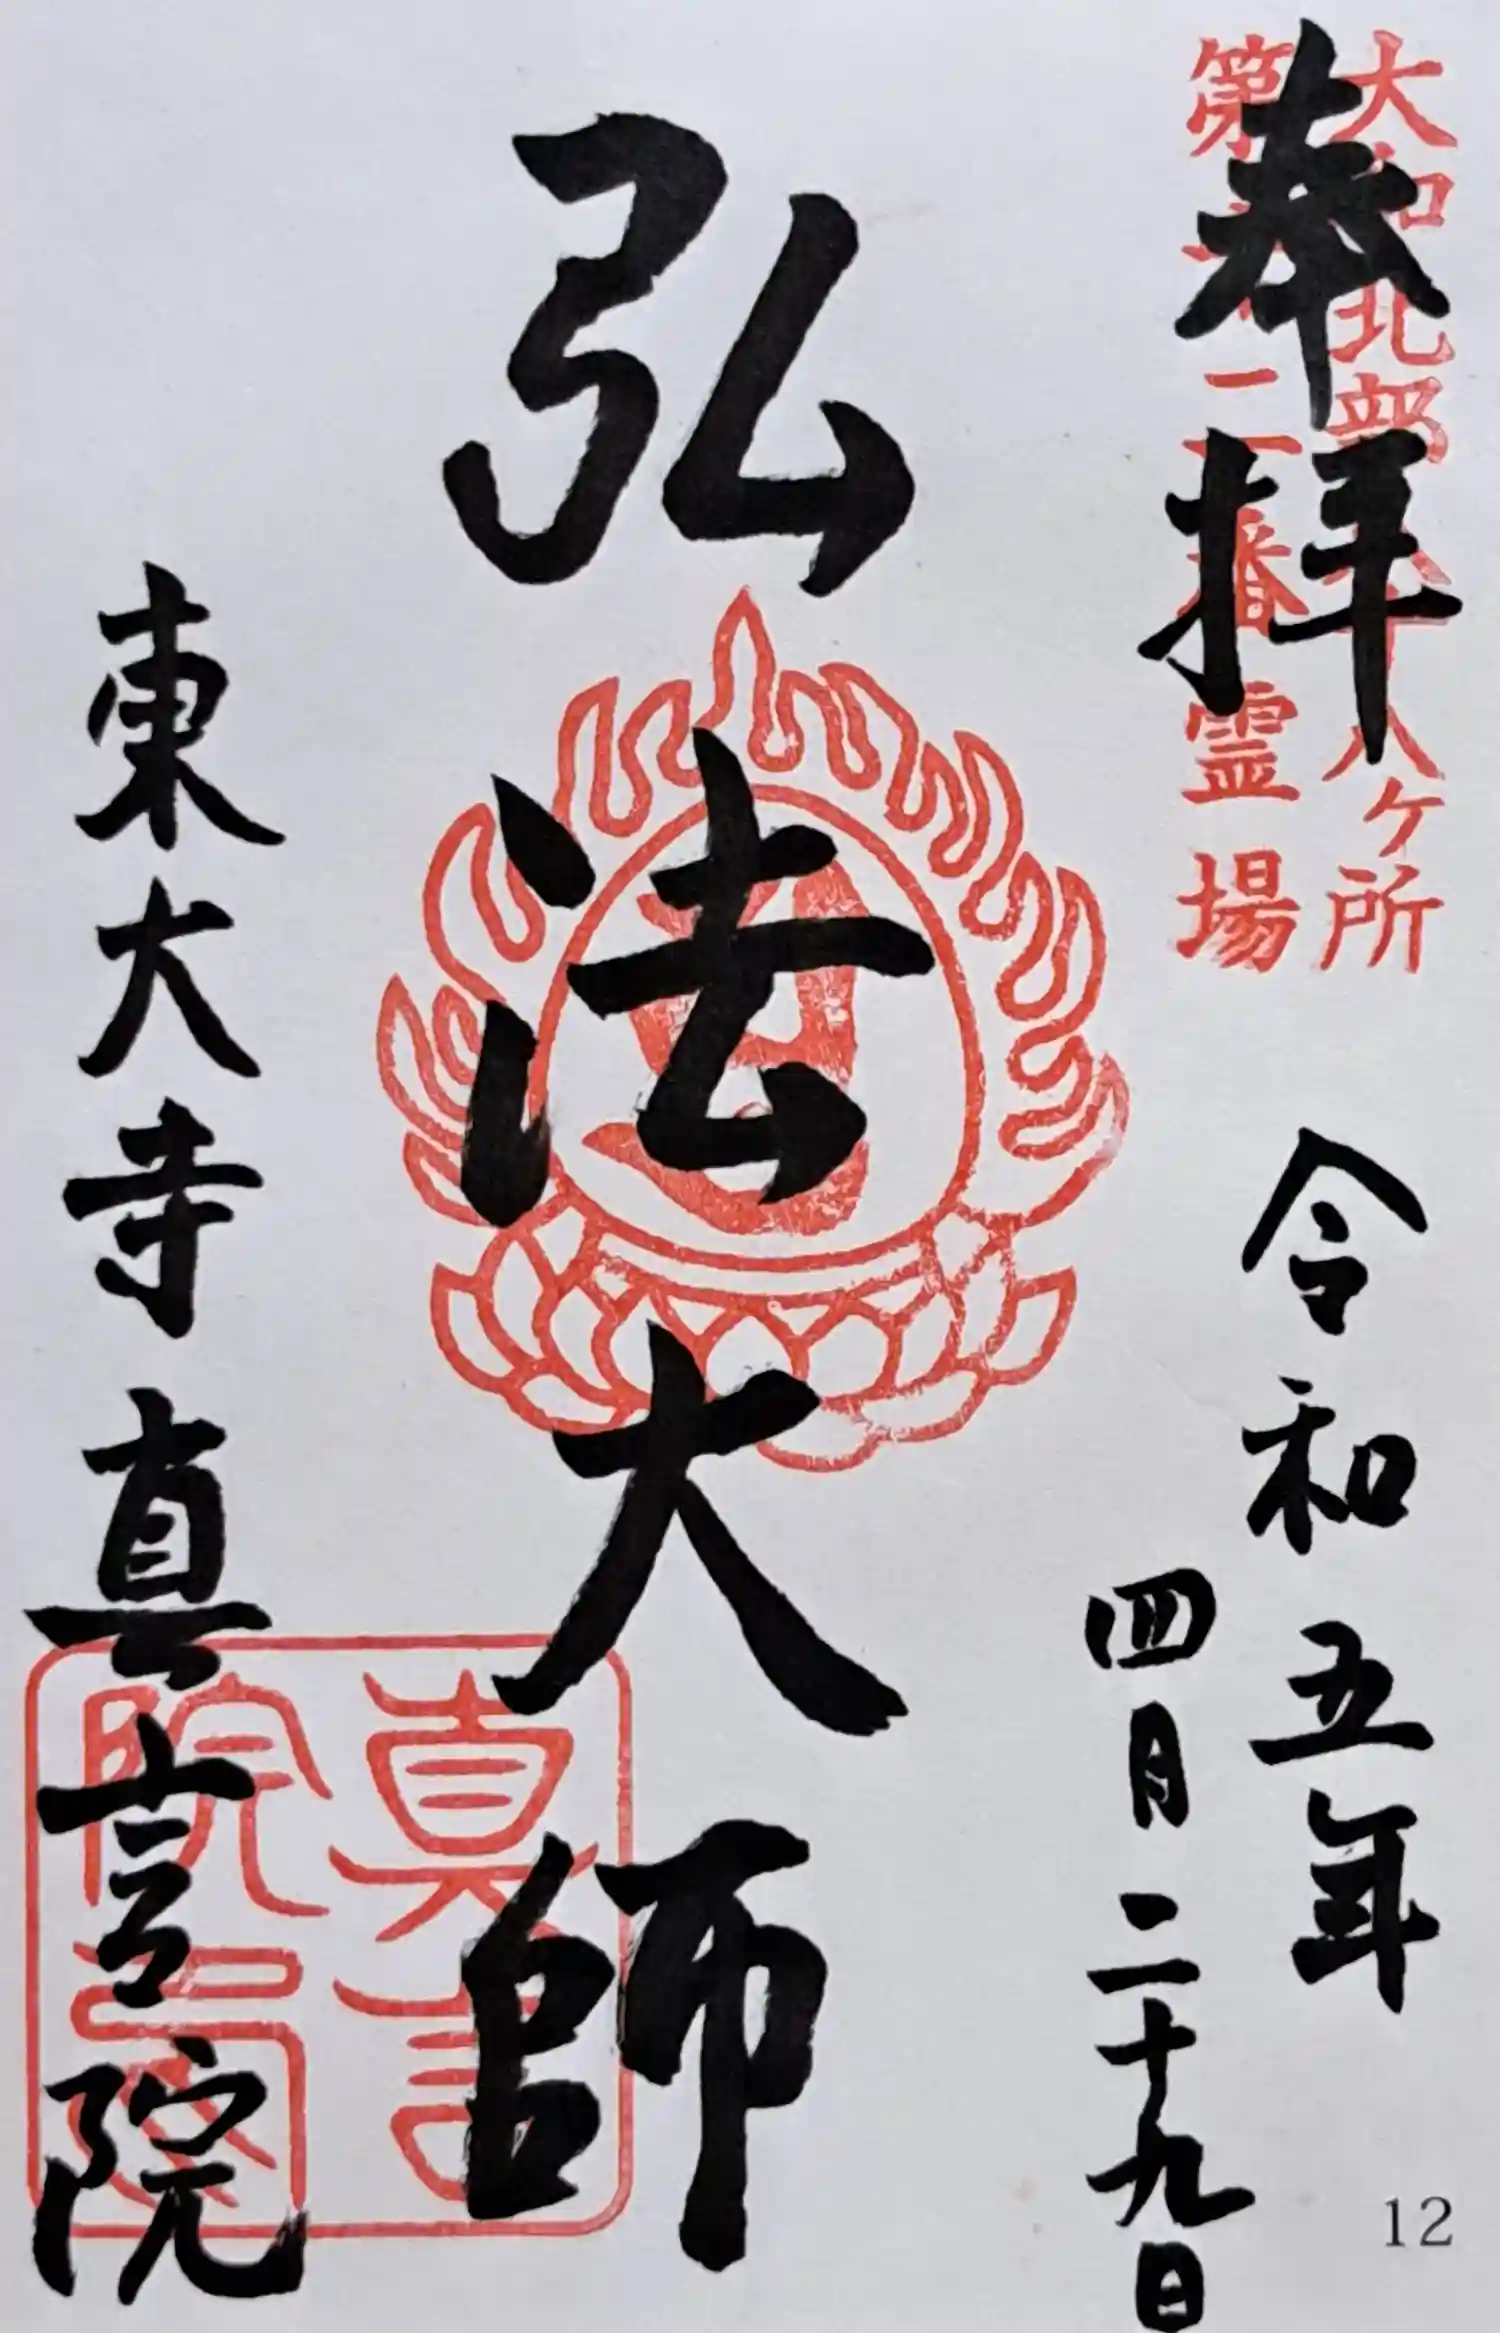 奉拝
大和北部八十八ヶ所
第十二番霊場
令和五年
四月二十九日
弘法大師
東大寺真言院
眞言
院印
12